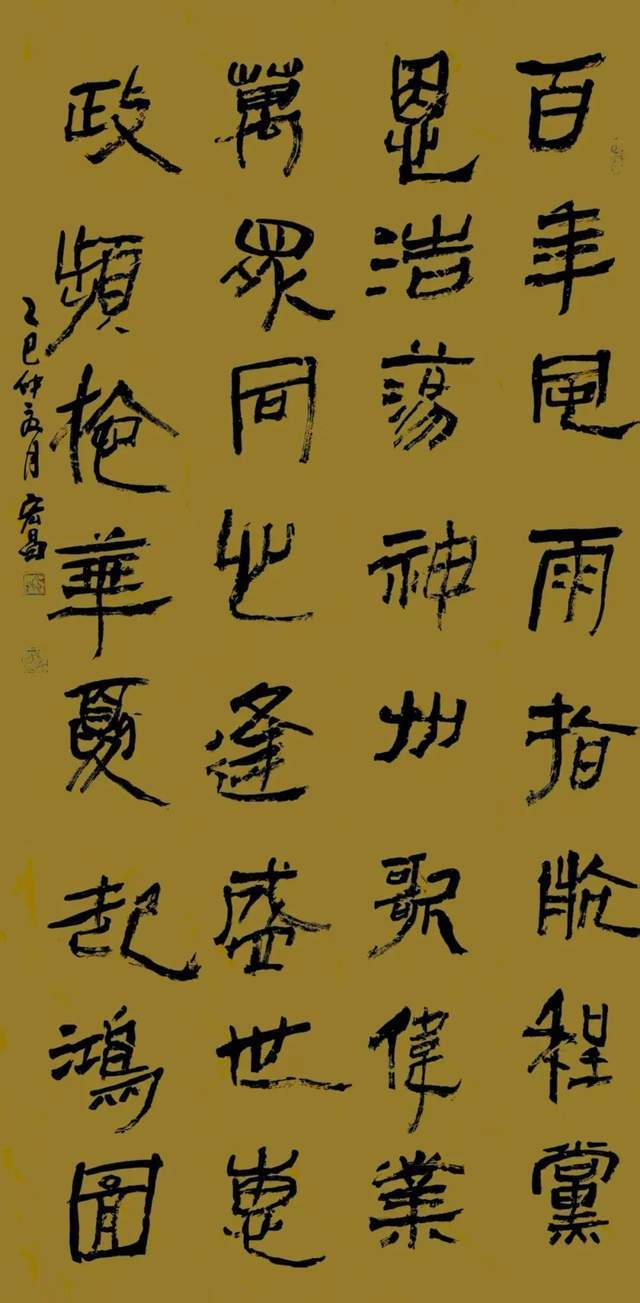 百年風雨指航程黨
恩浩蕩神州歌偉業
萬眾同心逢盛世惠
政頻施華夏起鴻圖
乙巳仲夏月宏昌